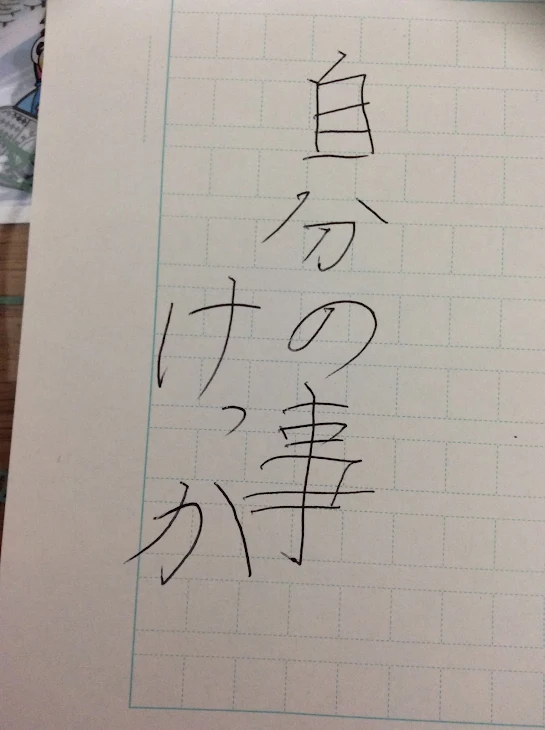 自分の事
けっか